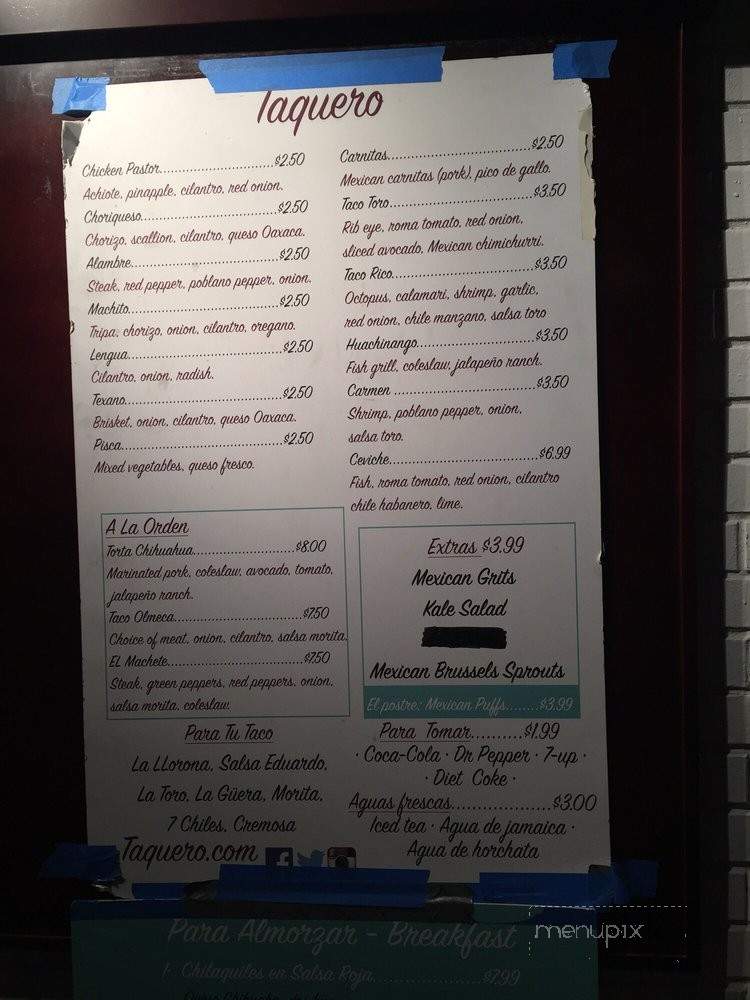 Taquero
Chicken Pastor............................$2.50
Achiote, pinapple, cilantro, red onion.
Choriqueso..................................$2.50
Chorizo, scallion, cilantro, queso Oaxaca.
Alambre.....................................$2.50
Steak, red pepper, poblano pepper, onion.
Machito......................................$2.50
Tripa, chorizo, onion, cilantro, oregano.
Lengua......................................$2.50
Cilantro, onion, radish.
Texano.......................................$2.50
Brisket, onion, cilantro, queso Oaxaca.
Pisca.........................................$2.50
Mixed vegetables, queso fresco.
Carnitas...................................$2.50
Mexican carnitas (pork), pico de gallo.
Taco Toro...................................$3.50
Rib eye, roma tomato, red onion,
sliced avocado, Mexican chimichurri.
Taco Rico...................................$3.50
Octopus, calamari, shrimp, garlic,
red onion, chile manzano, salsa toro
Huachinango.............................$3.50
Fish grill, coleslaw, jalapeño ranch.
Carmen ...................................$3.50
Shrimp, poblano pepper, onion,
salsa toro.
Ceviche.....................................$6.99
Fish, roma tomato, red onion, cilantro
chile habanero, lime.
A La Orden
Torta Chihuahua.........................$8.00
Marinated pork, coleslaw, avocado, tomato,
jalapeño ranch.
Taco Olmeca................................$7.50
Choice of meat, onion, cilantro, salsa morita.
EL Machete.................................$7.50
Steak, green peppers, red peppers, onion,
salsa morita, coleslaw.
Extras $3.99
Mexican Grits
Kale Salad
Mexican Brussels Sprouts
El postre: Mexican Puffs........$3.99
Para Tu Taco
La LLorona, Salsa Eduardo,
La Toro, La Güera, Morita,
7 Chiles, Cremosa
Para Tomar..........$1.99
· Coca-Cola · Dr Pepper · 7-up ·
· Diet Coke ·
Aguas frescas....................$3.00
Iced tea · Agua de jamaica ·
Agua de horchata
Taquero.com
Para Almorzar - Breakfast
1. Chilaquiles en Salsa Roja....................$7.99
menupix